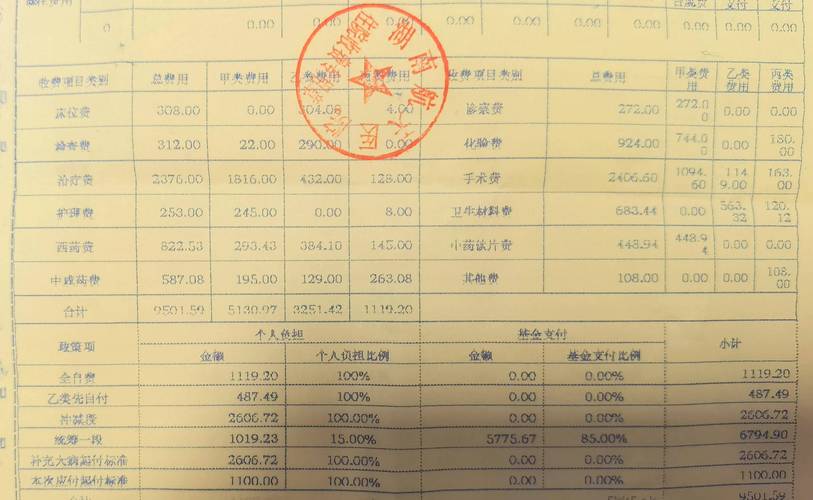 0 0.00 0.00 0.00 0.00 0.00 0.00 0.00 0.00 0.00
收费项目类别 总费用 甲类费用 乙类费用 收费项目类别 总费用 甲类费用 乙类费用 丙类费用
床位费 308.00 0.00 304.00 4.00 诊察费 272.00 272.00 0.00 0.00
检查费 312.00 22.00 290.00 0.00 化验费 924.00 744.00 0.00 180.00
治疗费 2376.00 1816.00 432.00 128.00 手术费 2406.60 1094.60 1149.00 163.00
护理费 253.00 245.00 0.00 8.00 卫生材料费 683.44 0.00 563.32 120.12
西药费 822.53 293.43 384.10 145.00 中药饮片费 448.94 448.94 0.00 0.00
中成药费 587.08 195.00 129.00 263.08 其他费 108.00 0.00 0.00 108.00
合计 9501.59 5130.97 3251.42 1119.20
政策项 个人负担 基金支付 小计
金额 个人负担比例 金额 基金支付比例
全自费 1119.20 100% 0.00 0.00% 1119.20
乙类先自付 487.49 100% 0.00 0.00% 487.49
冲减段 2606.72 100.00% 0.00 0.00% 2606.72
统筹一段 1019.23 15.00% 5775.67 85.00% 6794.90
补充大病起付标准 2606.72 100.00% 0.00 0.00% 2606.72
本次应付起付标准 1100.00 100.00% 0.00 0.00% 1100.00
合计 9501.59